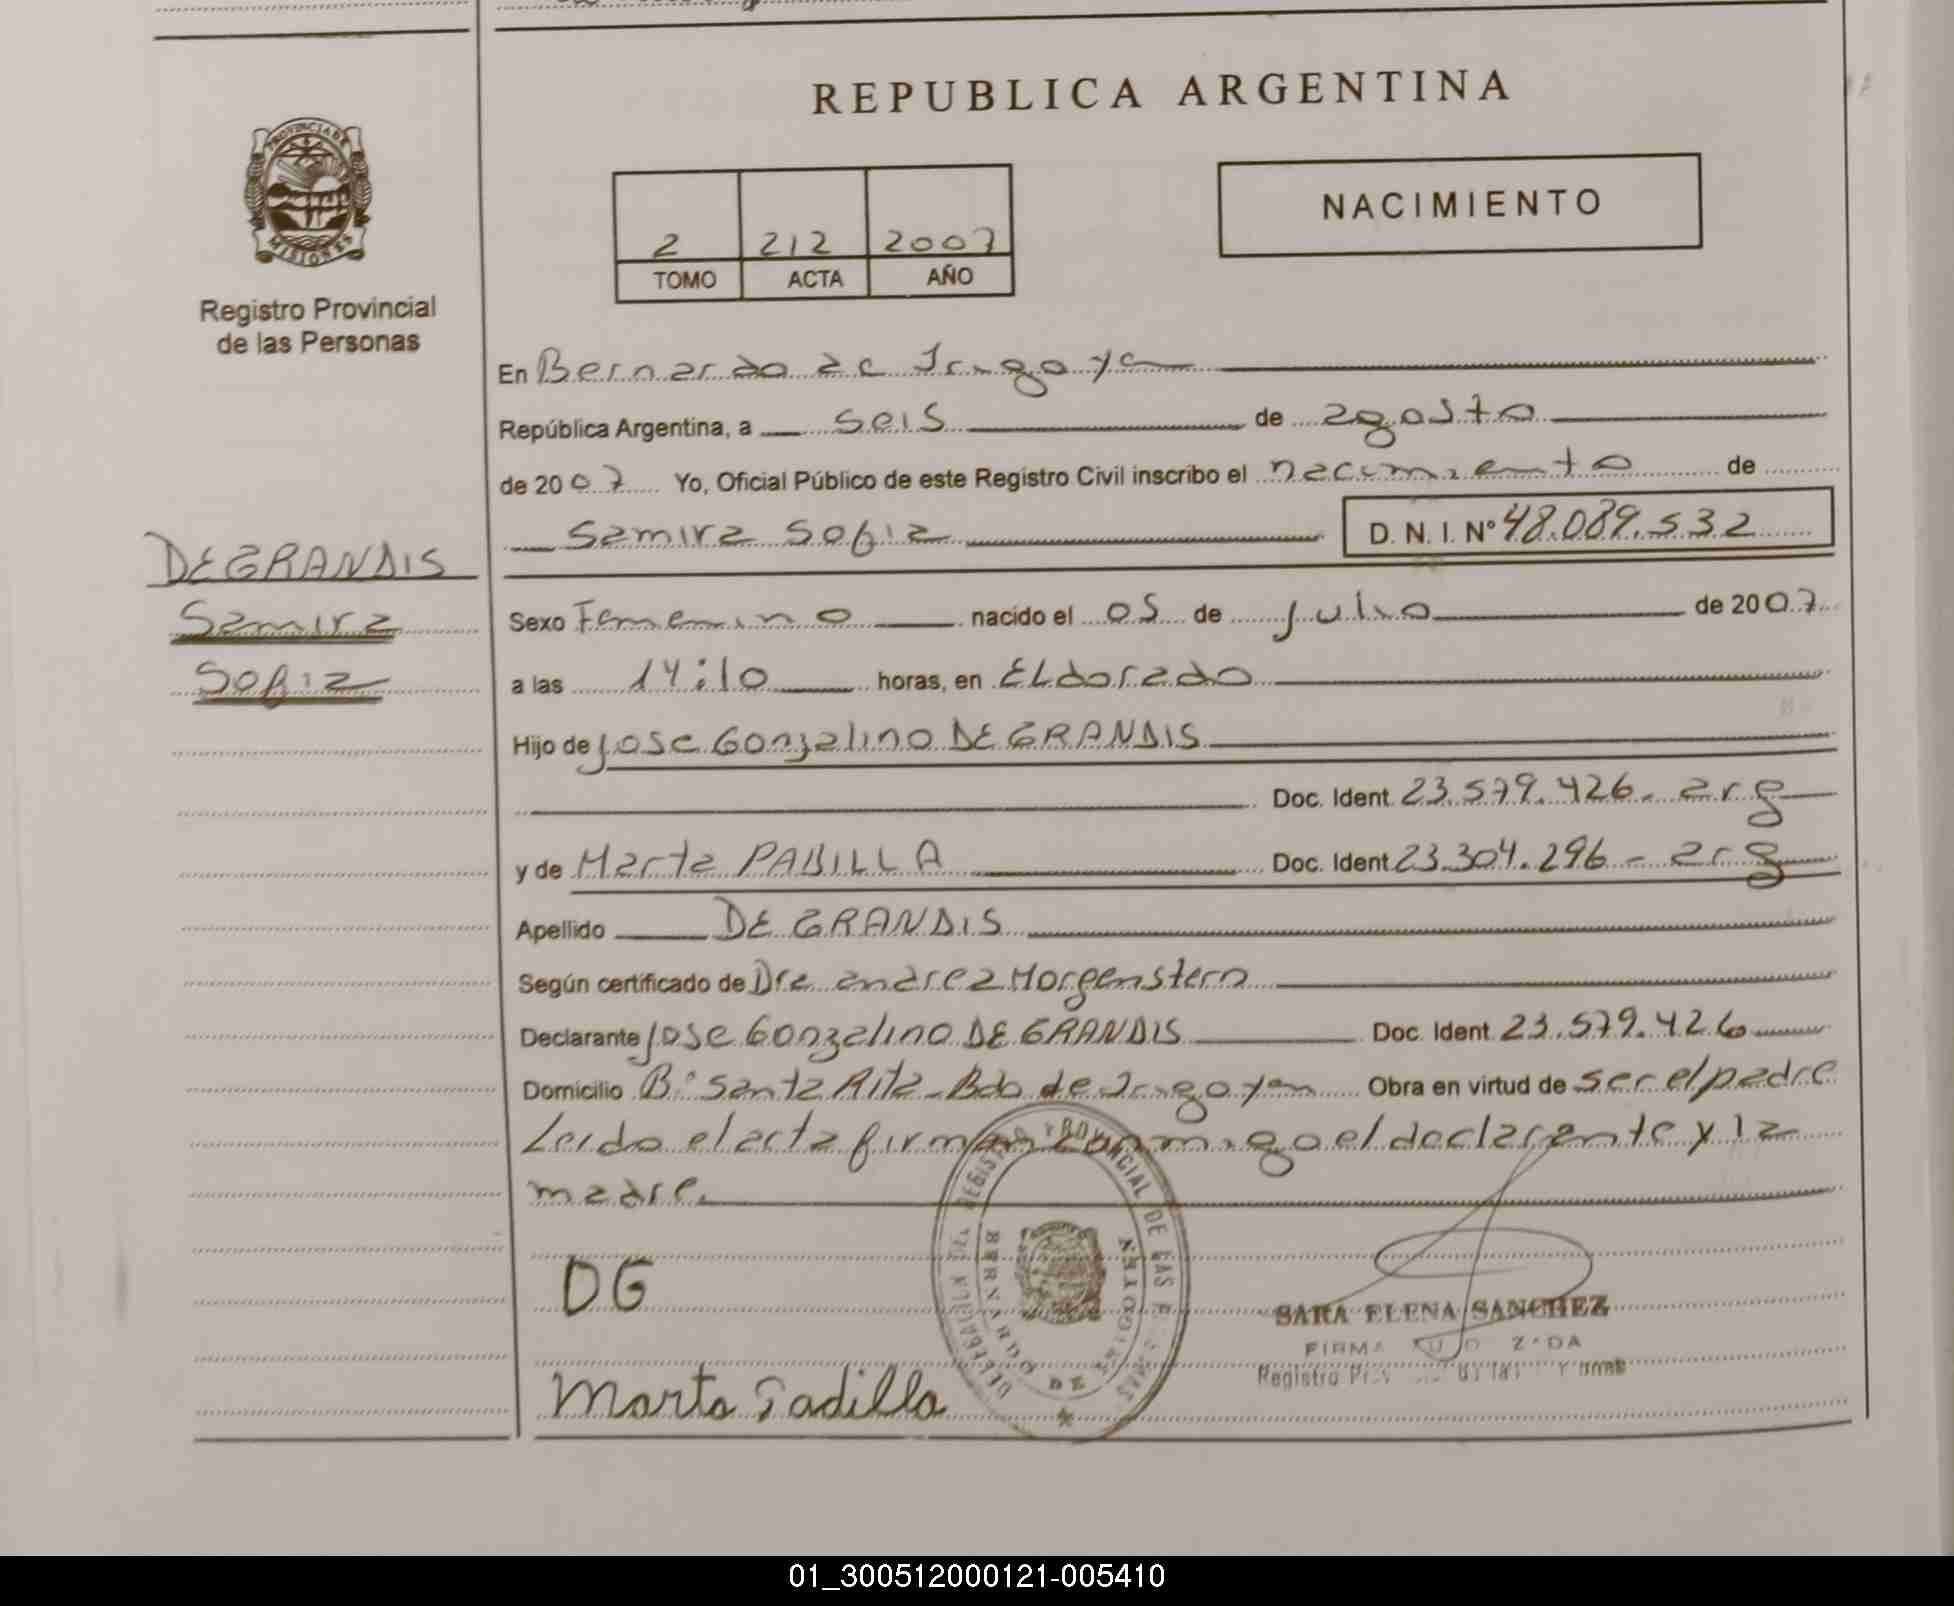 REPUBLICA ARGENTINA
PROVINCIA DE
MISIONES
Registro Provincial
de las Personas
2 212 2007
TOMO ACTA AÑO
NACIMIENTO
En Bernardo de Irigoyen
República Argentina, a seis de agosto
de 2007 Yo, Oficial Público de este Registro Civil inscribo el nacimiento de
Samira Sofia D. N. I. Nº 48.089.532
DEGRANDIS
Samira
Sofia
Sexo Femenino nacido el 05 de julio de 2007
a las 14:10 horas, en Eldorado
Hijo de Jose Gonzalino DEGRANDIS
Doc. Ident. 23.579.426 - arg
y de Marta PADILLA Doc. Ident. 23.304.296 - arg
Apellido DE GRANDIS
Según certificado de Dra andrea Morgenstern
Declarante Jose Gonzalino DE GRANDIS Doc. Ident. 23.579.426
Domicilio Bº Santa Rita - Bdo de Irigoyen Obra en virtud de ser el padre
Leido el acta firman conmigo el declarante y la
madre.
DELEGACION DEL REGISTRO PROVINCIAL DE LAS
BERNARDO DE IRIGOYEN
DG
SARA ELENA SANCHEZ
Marta Padilla
01_300512000121-005410